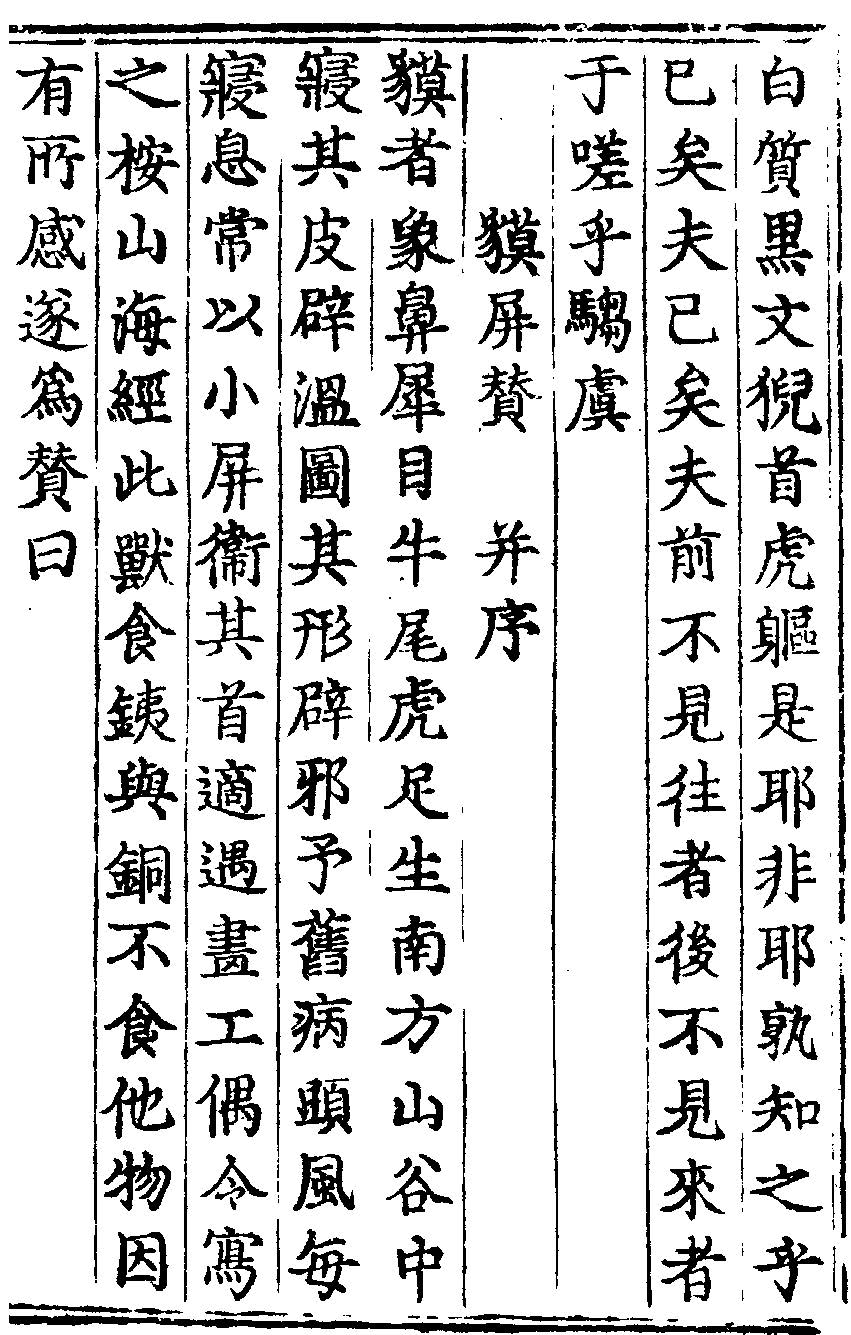 白質黒文猊首虎軀是耶非耶孰知之乎
已矣夫已矣夫前不見往者後不見來者
于嗟乎騶虞
貘屏贊　并序
貘者象鼻犀目牛尾虎足生南方山谷中
寢其皮辟溫圖其形辟邪予舊病頭風每
寢息常以小屏衛其首適遇畫工偶令寫
之桉山海經此獸食鉄與銅不食他物因
有所感遂為贊曰